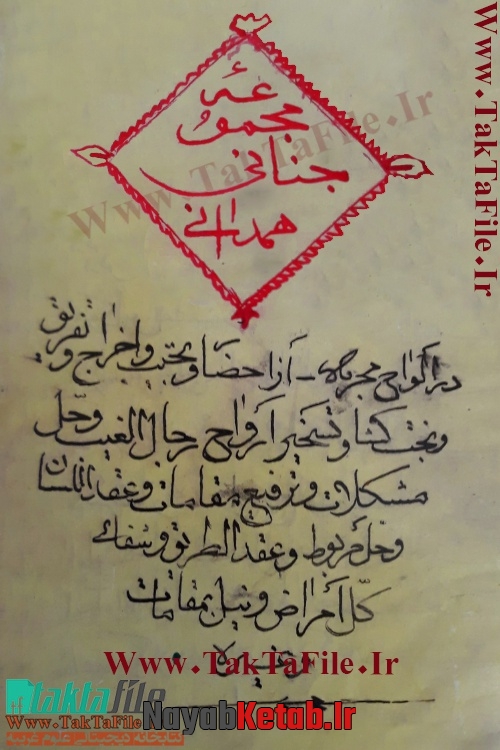 مجموعهٔ
جنابی
همدانی
در الواح مجربه - از احضار و تحبیب و اخراج و تفریق
و بخت گشا و تسخیر ارواح رجال الغیب و حل
مشکلات و ترفیع مقامات و عقد اللسان
و حل مربوط و عقد الطریق و شفاء
کل امراض و نیل بمقامات
و غیره
www.TakTaFile.Ir
www.TakTaFile.Ir
www.TakTaFile.Ir
Www.TakTaFile.Ir
taktafile
www.TakTaFile.Ir
NayabKetab.Ir